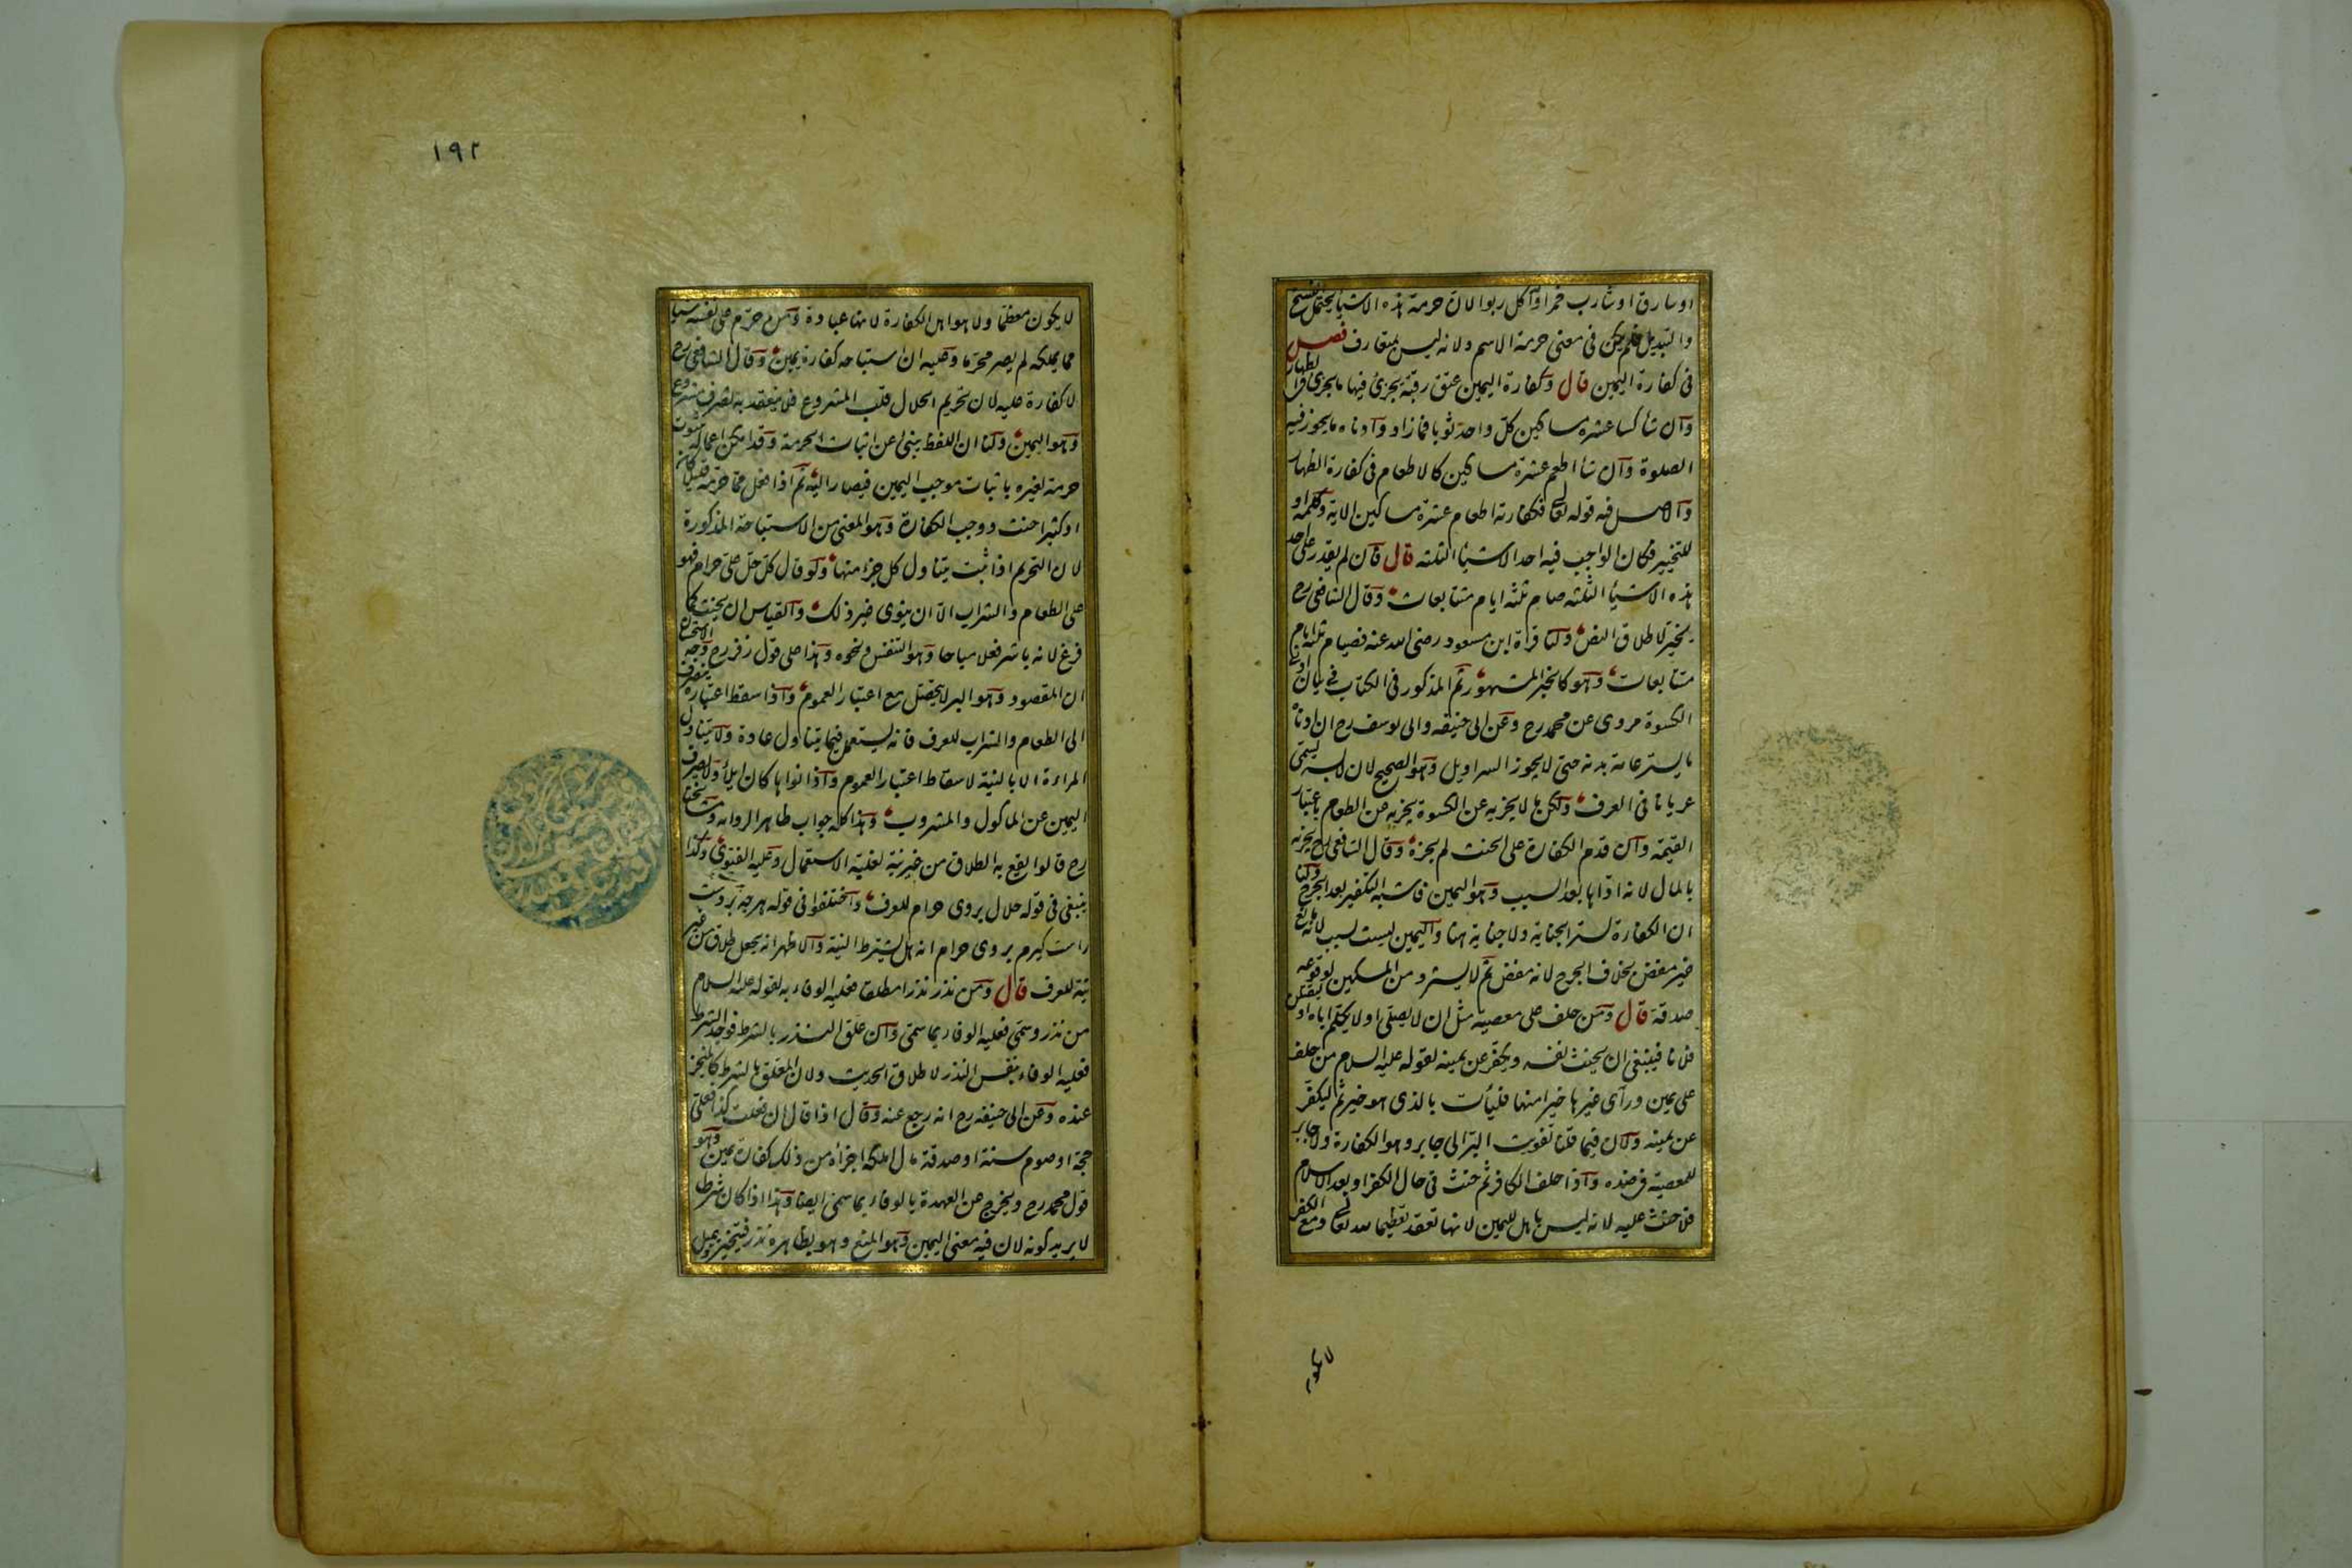 او سارق او شارب خمر او آكل ربوا لان حرمة هذه الاشياء يحتمل النسخ
والتبديل فلم يكن فى معنى حرمة الاسم ولانه ليس بمتعارف فصل
فى كفارة اليمين قال وكفارة اليمين عتق رقبة يجزئ فيها ما يجزئ فى الظهار
وان شاء كسا عشرة مساكين كل واحد ثوبا فما زاد وادناه ما يجوز فيه
الصلوة وان شاء اطعم عشرة مساكين كالاطعام فى كفارة الظهار
والاصل فيه قوله تعالى فكفارته اطعام عشرة مساكين الاية وكلمة او
للتخيير فكان الواجب فيه احد الاشياء الثلثة قال فان لم يقدر على احد
هذه الاشياء الثلثة صام ثلثة ايام متتابعات وقال الشافعى رح
يخير لاطلاق النص ولنا قراة ابن مسعود رضى الله عنه فصيام ثلثة ايام
متتابعات وهو كالخبر المشهور ثم المذكور فى الكتاب فى بيان ادنى
الكسوة مروى عن محمد رح وعن ابى حنيفه وابى يوسف رح ان ادناه
ما يستر عامة بدنه حتى لا يجوز السراويل وهو الصحيح لان لابسه يسمى
عريانا فى العرف ولكن ما لا يجزيه عن الكسوة يجزيه عن الطعام باعتبار
القيمة وان قدم الكفارة على الحنث لم يجزه وقال الشافعى رح يجزيه
بالمال لانه اداها بعد السبب وهو اليمين فاشبه التكفير بعد الجرح ولنا
ان الكفارة لستر الجناية ولا جناية هنا واليمين ليست بسبب لانه مانع
غير مفض بخلاف الجرح لانه مفض ثم لا يسترد من المسكين لوقوعه
صدقة قال ومن حلف على معصية مثل ان لا يصلى او لا يكلم اباه او ليقتلن
فلانا فينبغى ان يحنث نفسه ويكفر عن يمينه لقوله عليه السلام من حلف
على يمين وراى غيرها خيرا منها فليأت بالذى هو خير ثم ليكفر
عن يمينه ولان فيما قلنا تفويت البر الى جابر وهو الكفارة ولا جابر
للمعصية فى ضده واذا حلف الكافر ثم حنث فى حال الكفر او بعد الاسلام
فلا حنث عليه لانه ليس باهل لليمين لانها تعقد تعظيما لله تعالى ومع الكفر
١٩٢
لا يكون معظما ولا هو اهل الكفارة لانها عبادة ومن حرم على نفسه شيئا
مما يملكه لم يصر محرما وعليه ان استباحه كفارة يمين وقال الشافعى رح
لا كفارة عليه لان تحريم الحلال قلب المشروع فلا ينعقد به تصرف مشروع
وهو اليمين ولنا ان اللفظ ينبئ عن اثبات الحرمة وقد امكن اعماله بثبوت
حرمة لغيره باثبات موجب اليمين فيصار اليه ثم اذا فعل مما حرمه قليلا كان
او كثيرا حنث ووجب الكفارة وهو المعنى من الاستباحة المذكورة
لان التحريم اذا ثبت يتناول كل جزء منها ولو قال كل حل على حرام فهو
على الطعام والشراب الا ان ينوى غير ذلك والقياس ان يحنث كما
فرغ لانه باشر فعلا مباحا وهو التنفس ونحوه وهذا على قول زفر رح وجه الاستحسان
ان المقصود وهو البر لا يحصل مع اعتبار العموم واذا سقط اعتباره ينصرف
الى الطعام والشراب للعرف فانه يستعمل فيما يتناول عادة ولا يتناول
المراءة الا بالنية لاسقاط اعتبار العموم واذا نواها كان ايلاء ولا يصرف
اليمين عن الماكول والمشروب وهذا كله جواب ظاهر الروايه ومشايخنا
رح قالوا يقع به الطلاق من غير نية لغلبة الاستعمال وعليه الفتوى وكذا
ينبغى فى قوله حلال بروى حرام للعرف واختلفوا فى قوله هرچه بردست
راست كيرم بروى حرام انه هل يشترط النية والاظهر انه يجعل طلاقا من غير
نية للعرف قال ومن نذر نذرا مطلقا فعليه الوفاء به لقوله عليه السلام
من نذر وسمى فعليه الوفاء بما سمى وان علق النذر بالشرط فوجد الشرط
فعليه الوفاء بنفس النذر لاطلاق الحديث ولان المعلق بالشرط كالمنجز
عنده وعن ابى حنيفه رح انه رجع عنه وقال اذا قال ان فعلت كذا فعلى
حجة او صوم سنة او صدقة مال املكه اجزاه من ذلك كفارة يمين وهو
قول محمد رح ويخرج عن العهدة بالوفاء بما سمى ايضا وهذا اذا كان شرطا
لا يريد كونه لان فيه معنى اليمين وهو المنع وهو بظاهره نذر فيتخير ويميل